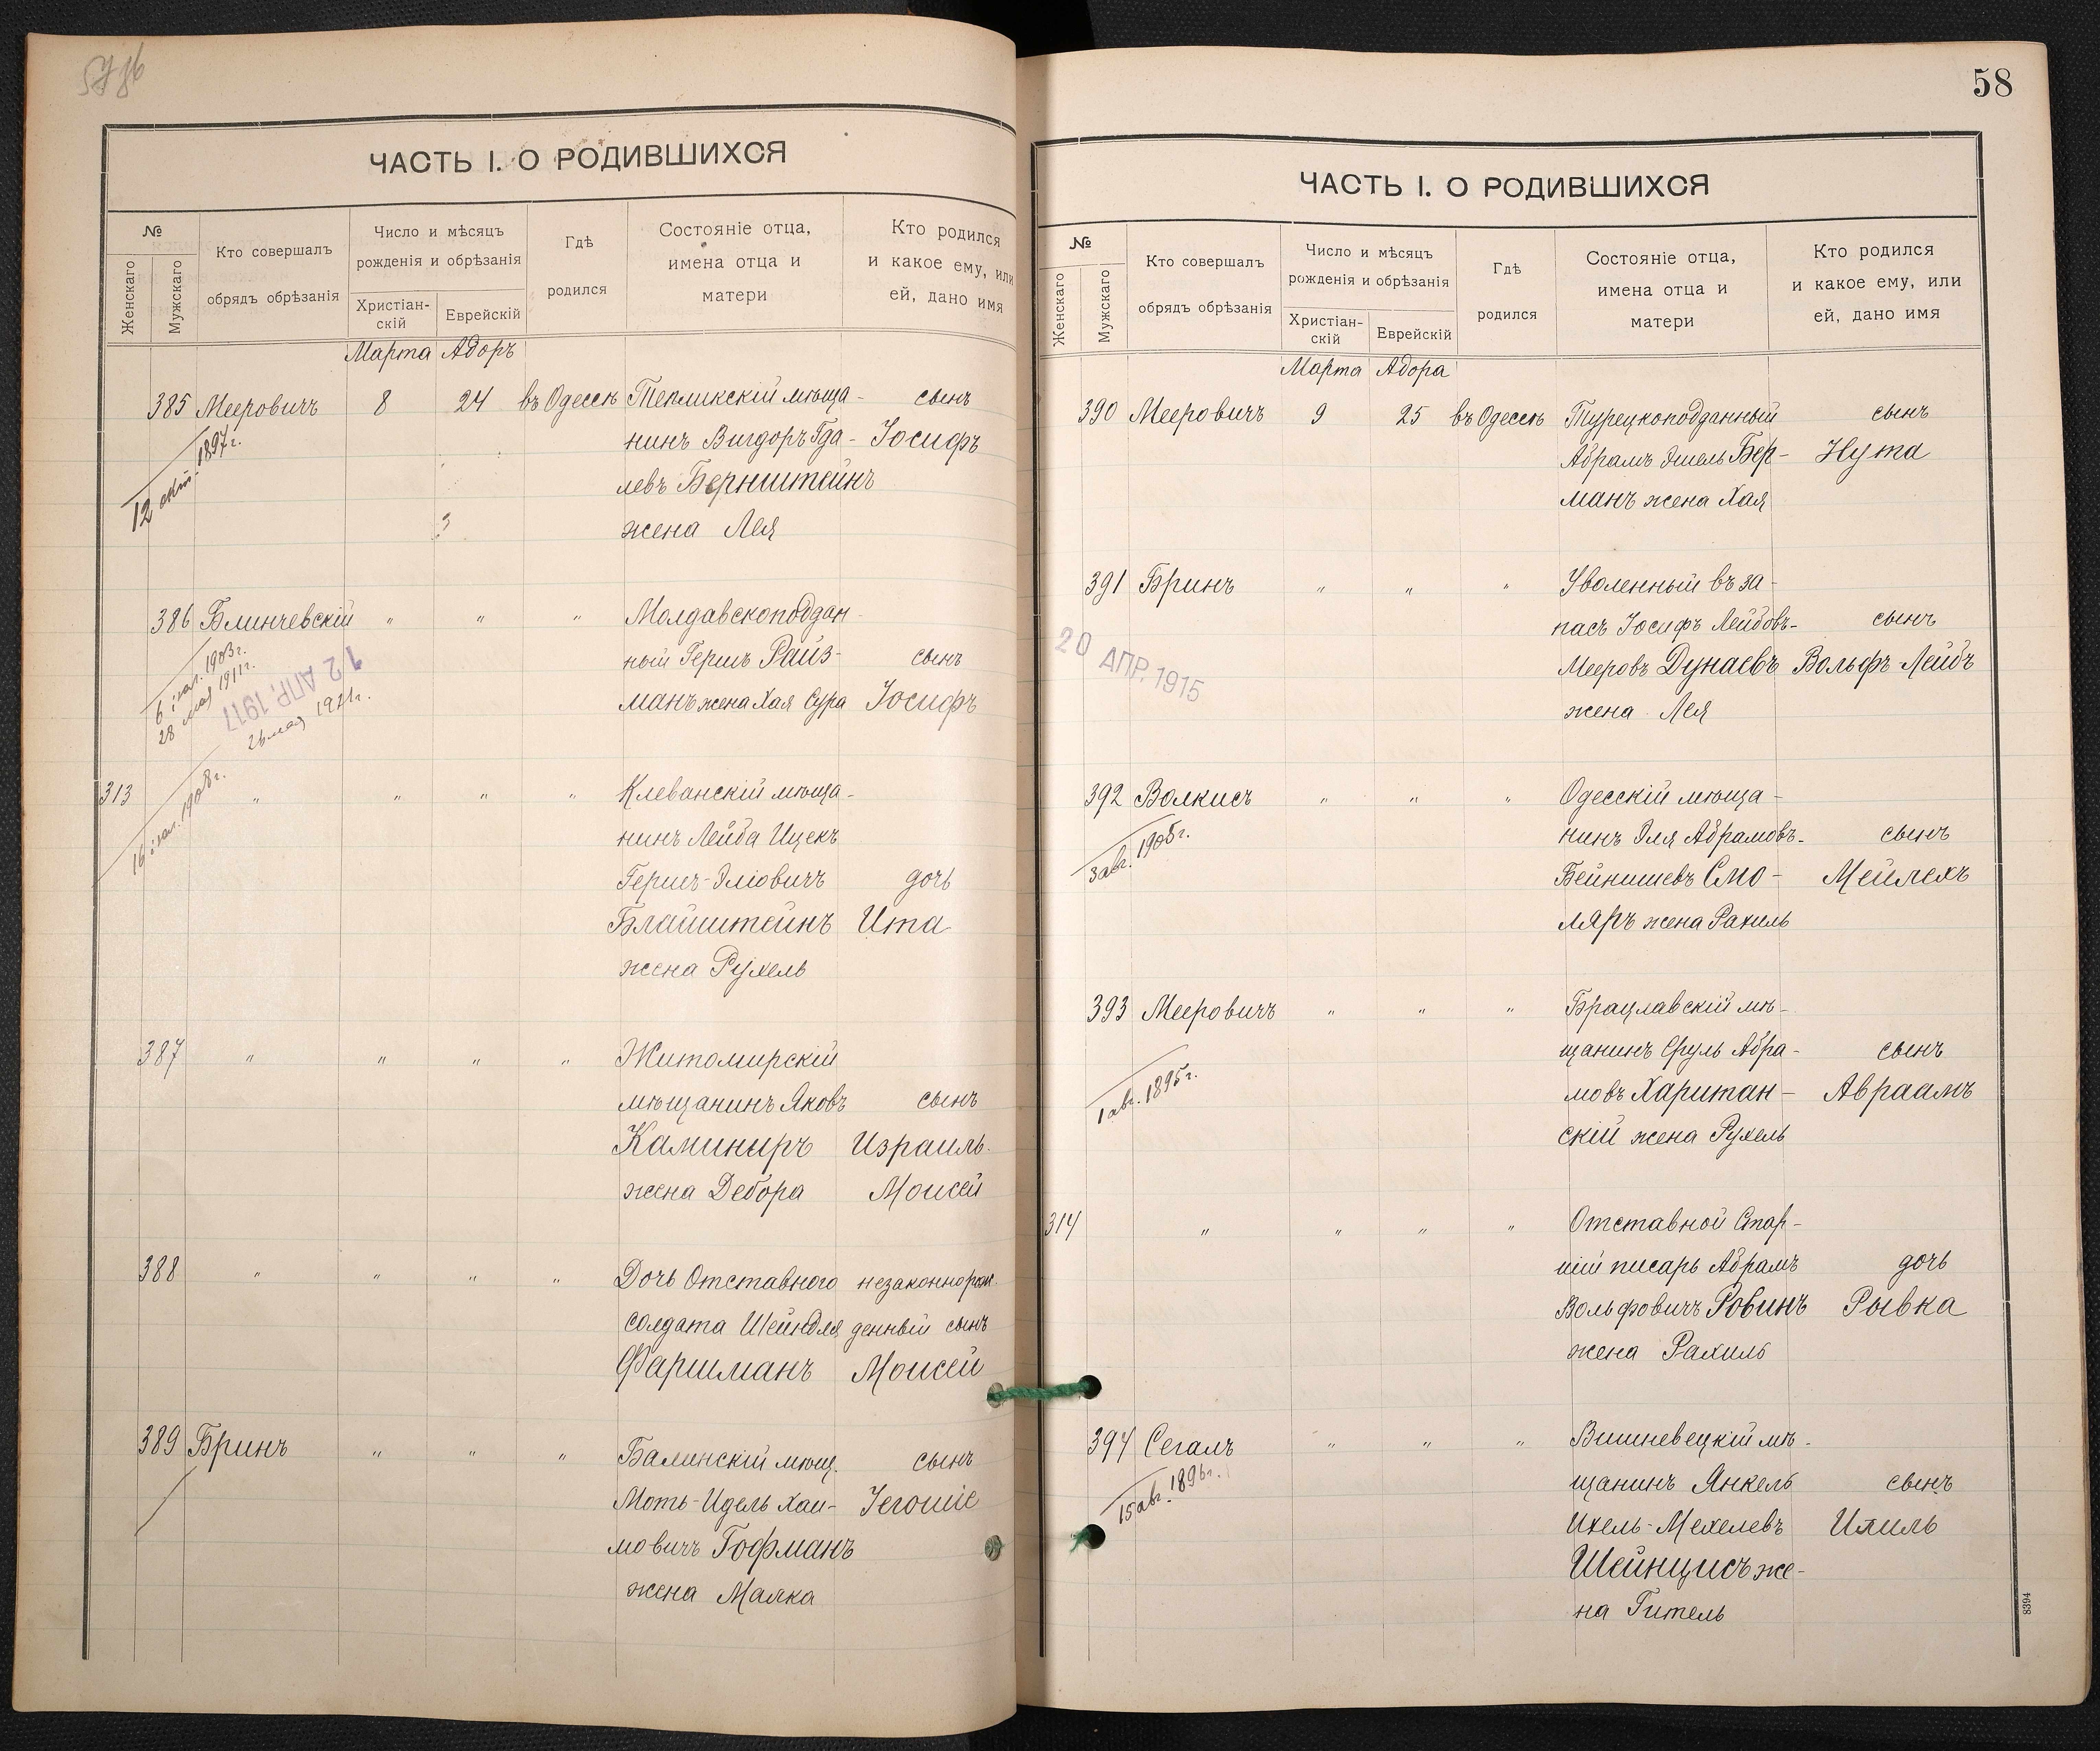 ЧАСТЬ I. О РОДИВШИХСЯ
№
Женскаго
Мужскаго
Кто совершалъ
обрядъ обрѣзанія
Число и мѣсяцъ
рожденія и обрѣзанія
Христіан-
скій
Еврейскій
Гдѣ
родился
Состояніе отца,
имена отца и
матери
Кто родился
и какое ему, или
ей, дано имя
Марта Адоръ
385 Мееровичъ 8 24 въ Одессѣ Тепликскій мѣща- сынъ
1897г. нинъ Вигдоръ Гда- Іосифъ
12 окт. левъ Бернштейнъ
3 жена Лея
386 Блинчевскій " " " Молдавскоподдан-
6 іюл. 1903г. ный Гершъ Райз- сынъ
28 мая 1911г. манъ жена Хая Сура Іосифъ
12 АПР. 1917
26 мая 1921г.
313 " " " " Клеванскій мѣща-
16 іюл. 1908г. нинъ Лейба Ицекъ
Гершъ-Эліовичъ дочь
Блайштейнъ Ита
жена Рухель
387 " " " " Житомирскій
мѣщанинъ Яковъ сынъ
Каминиръ Израиль-
жена Дебора Моисей
388 " " " " Дочь Отставного незаконнорож-
солдата Шейндля денный сынъ
Фаришманъ Моисей
389 Бринъ " " " Балинскій мѣщ. сынъ
Моть-Идель Хаи- Іегошіе
мовичъ Гофманъ
жена Малка
58
ЧАСТЬ I. О РОДИВШИХСЯ
№
Женскаго
Мужскаго
Кто совершалъ
обрядъ обрѣзанія
Число и мѣсяцъ
рожденія и обрѣзанія
Христіан-
скій
Еврейскій
Гдѣ
родился
Состояніе отца,
имена отца и
матери
Кто родился
и какое ему, или
ей, дано имя
Марта Адора
390 Мееровичъ 9 25 въ Одессѣ Турецкоподданный сынъ
Абрамъ Эшель Бер- Нута
манъ жена Хая
391 Бринъ " " " Уволенный въ за-
20 АПР. 1915 пасъ Іосифъ Лейбовъ- сынъ
Мееровъ Дунаевъ Вольфъ Лейбъ
жена Лея
392 Волкисъ " " " Одесскій мѣща-
3 авг. 1905г. нинъ Эля Абрамовъ- сынъ
Бейнишевъ Смо- Мейлехъ
ляръ жена Рахиль
393 Мееровичъ " " " Брацлавскій мѣ-
щанинъ Сруль Абра- сынъ
1 авг. 1895г. мовъ Харитан- Авраамъ
скій жена Рухель
314 " " " " Отставной Стар-
шій писарь Абрамъ дочь
Вольфовичъ Ровинъ Рывка
жена Рахиль
394 Сегалъ " " " Вишневецкій мѣ-
15 авг. 1896г. щанинъ Янкель сынъ
Ихель-Мехелевъ
Шейнцисъ же-
на Гитель
8394